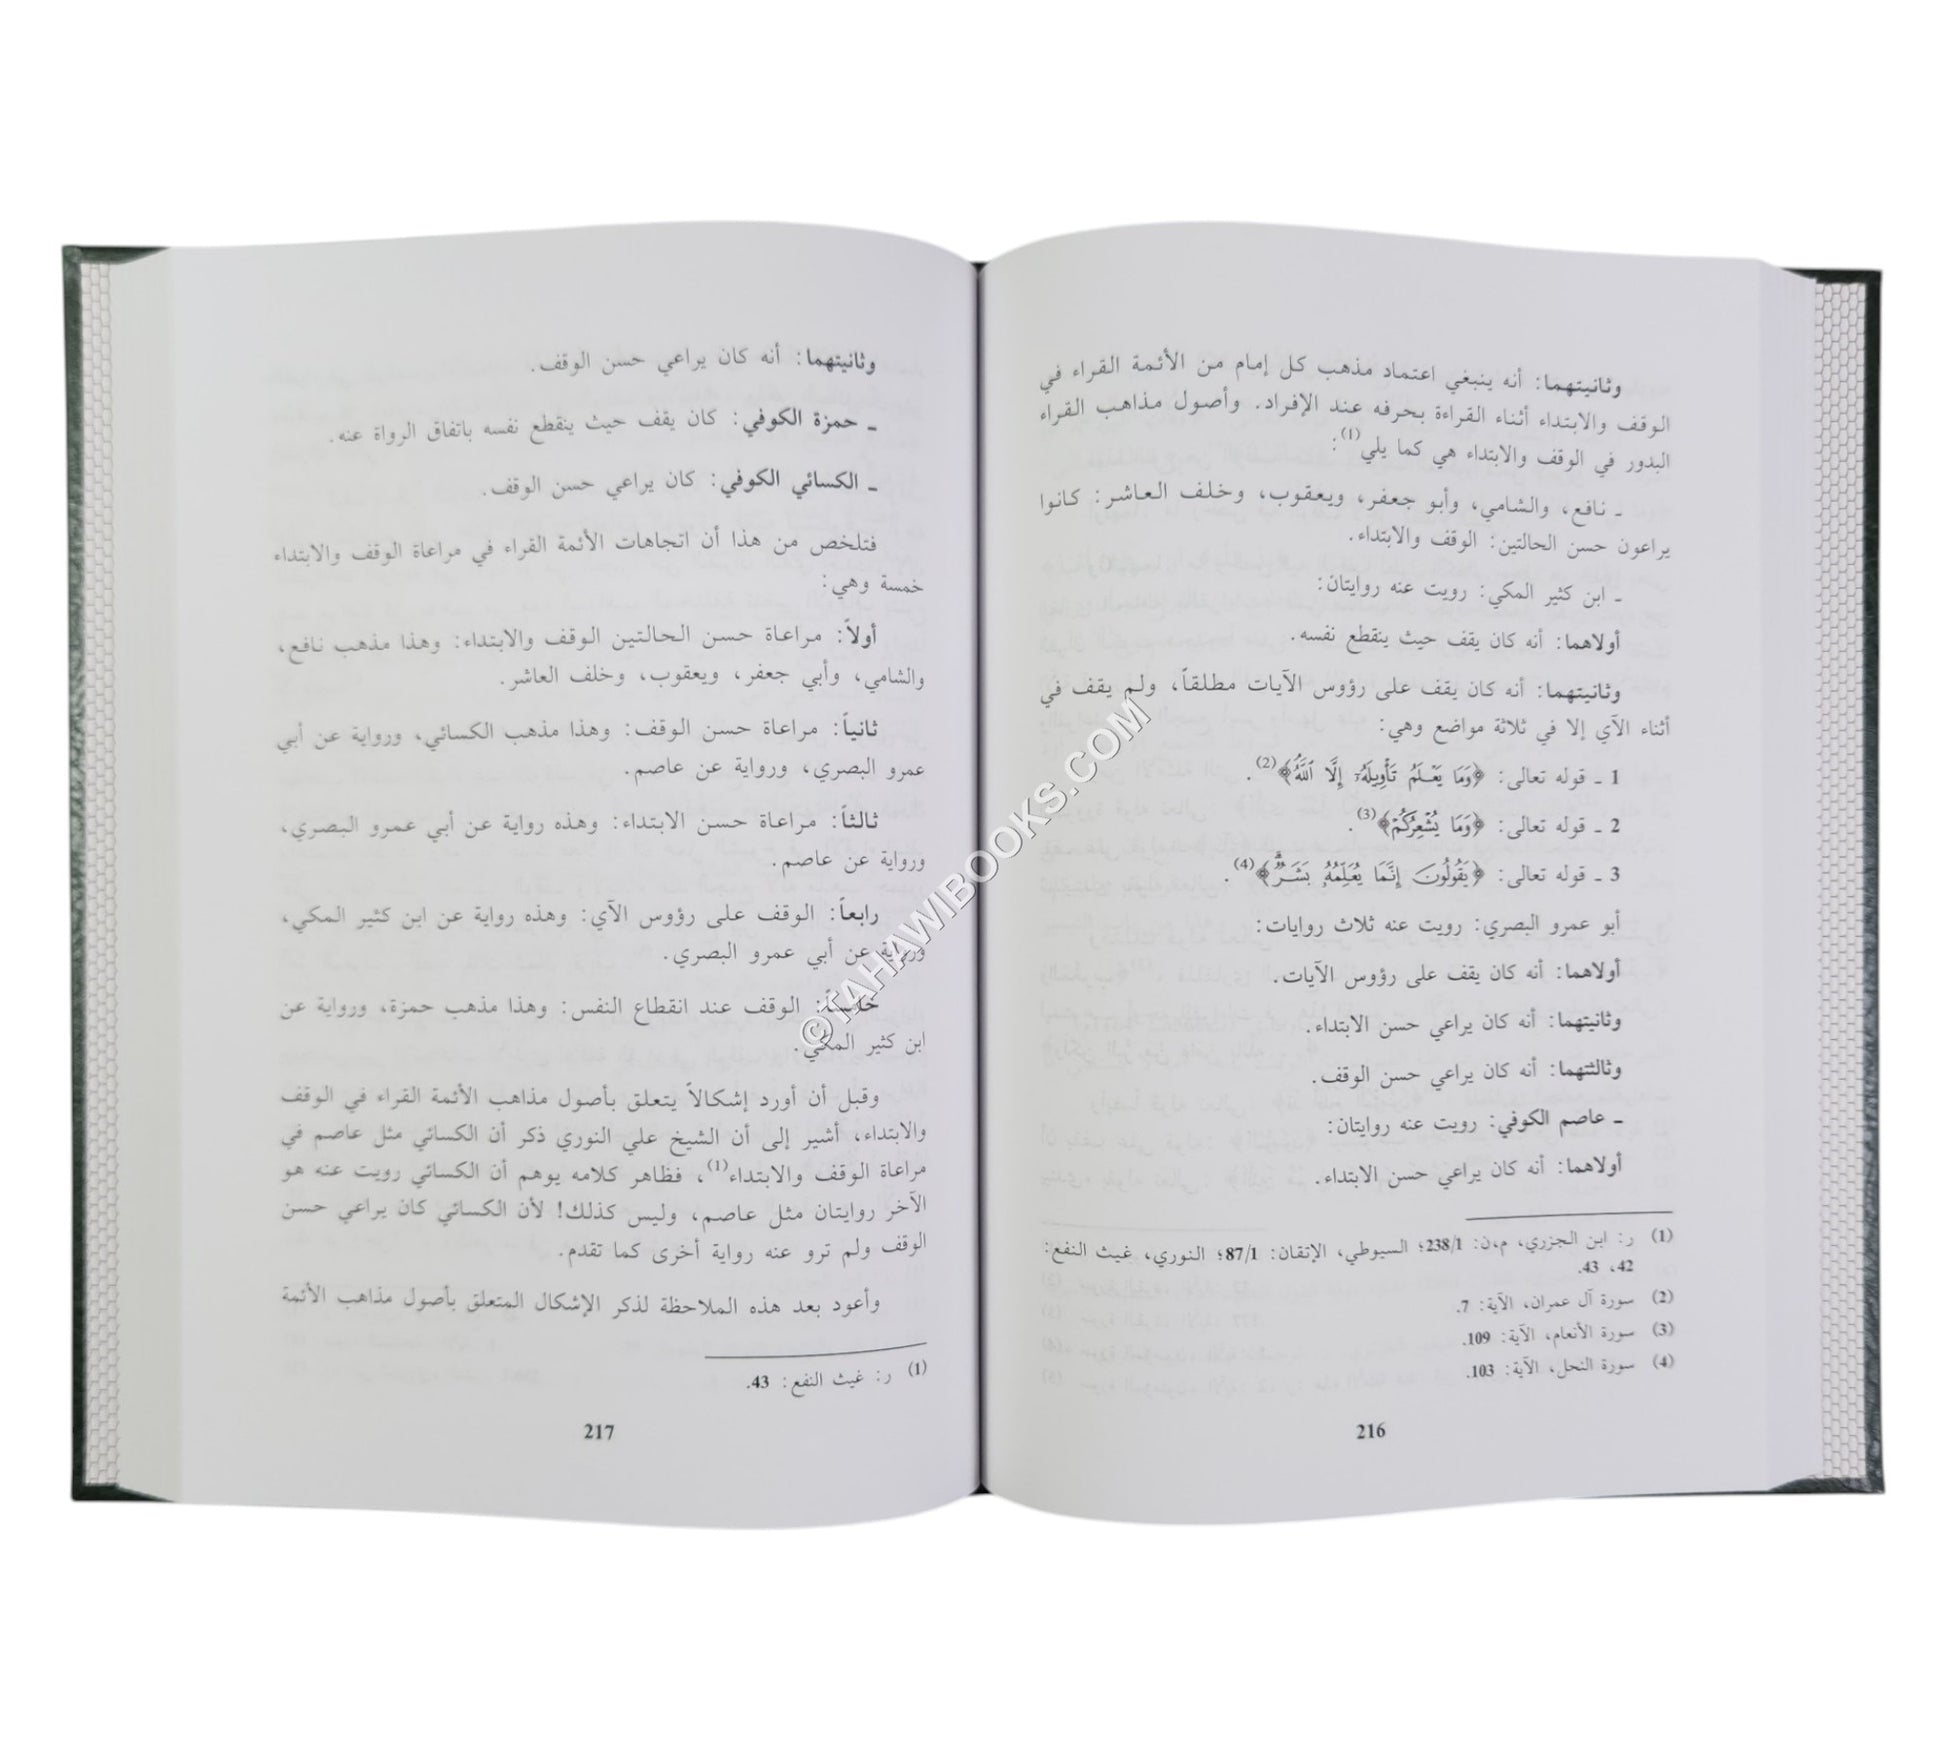 وثانيتهما: أنه ينبغي اعتماد مذهب كل إمام من الأئمة القراء في
الوقف والابتداء أثناء القراءة بحرفه عند الإفراد. وأصول مذاهب القراء
البدور في الوقف والابتداء هي كما يلي(1):
ـ نافع، والشامي، وأبو جعفر، ويعقوب، وخلف العاشر: كانوا
يراعون حسن الحالتين: الوقف والابتداء.
ـ ابن كثير المكي: رويت عنه روايتان:
أولاهما: أنه كان يقف حيث ينقطع نفسه.
وثانيتهما: أنه كان يقف على رؤوس الآيات مطلقاً، ولم يقف في
أثناء الآي إلا في ثلاثة مواضع وهي:
1 ـ قوله تعالى: ﴿وَمَا يَعْلَمُ تَأْوِيلَهُۥٓ إِلَّا ٱللَّهُ﴾(2).
2 ـ قوله تعالى: ﴿وَمَا يُشْعِرُكُمْ﴾(3).
3 ـ قوله تعالى: ﴿يَقُولُونَ إِنَّمَا يُعَلِّمُهُۥ بَشَرٌۗ﴾(4).
أبو عمرو البصري: رويت عنه ثلاث روايات:
أولاهما: أنه كان يقف على رؤوس الآيات.
وثانيتهما: أنه كان يراعي حسن الابتداء.
وثالثتهما: أنه كان يراعي حسن الوقف.
ـ عاصم الكوفي: رويت عنه روايتان:
أولاهما: أنه كان يراعي حسن الابتداء.
(1) ر: ابن الجزري، م،ن: 238/1؛ السيوطي، الإتقان: 87/1؛ النوري، غيث النفع:
42، 43.
(2) سورة آل عمران، الآية: 7.
(3) سورة الأنعام، الآية: 109.
(4) سورة النحل، الآية: 103.
216
وثانيتهما: أنه كان يراعي حسن الوقف.
ـ حمزة الكوفي: كان يقف حيث ينقطع نفسه باتفاق الرواة عنه.
ـ الكسائي الكوفي: كان يراعي حسن الوقف.
فتلخص من هذا أن اتجاهات الأئمة القراء في مراعاة الوقف والابتداء
خمسة وهي:
أولاً: مراعاة حسن الحالتين الوقف والابتداء: وهذا مذهب نافع،
والشامي، وأبي جعفر، ويعقوب، وخلف العاشر.
ثانياً: مراعاة حسن الوقف: وهذا مذهب الكسائي، ورواية عن أبي
عمرو البصري، ورواية عن عاصم.
ثالثاً: مراعاة حسن الابتداء: وهذه رواية عن أبي عمرو البصري،
ورواية عن عاصم.
رابعاً: الوقف على رؤوس الآي: وهذه رواية عن ابن كثير المكي،
ورواية عن أبي عمرو البصري.
خامساً: الوقف عند انقطاع النفس: وهذا مذهب حمزة، ورواية عن
ابن كثير المكي.
وقبل أن أورد إشكالاً يتعلق بأصول مذاهب الأئمة القراء في الوقف
والابتداء، أشير إلى أن الشيخ علي النوري ذكر أن الكسائي مثل عاصم في
مراعاة الوقف والابتداء(1)، فظاهر كلامه يوهم أن الكسائي رويت عنه هو
الآخر روايتان مثل عاصم، وليس كذلك! لأن الكسائي كان يراعي حسن
الوقف ولم ترو عنه رواية أخرى كما تقدم.
وأعود بعد هذه الملاحظة لذكر الإشكال المتعلق بأصول مذاهب الأئمة
(1) ر: غيث النفع: 43.
217
©TAHAWIBOOKS.COM